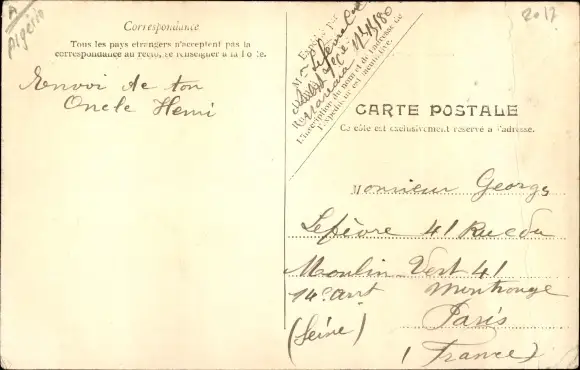 A
Algérie
2017
Correspondance
Tous les pays étrangers n'acceptent pas la
correspondance au recto, se renseigner à la Poste.
Envoi de ton
Oncle Henri
Expédié par
M
Lefèvre
L'inscription du nom et de l'adresse de
l'expéditeur est facultative.
CARTE POSTALE
Ce côté est exclusivement réservé à l'adresse.
Monsieur Georges
Lefèvre 41 Rue du
Moulin Vert 41
14e arrt Montrouge
Paris
(Seine)
(France)